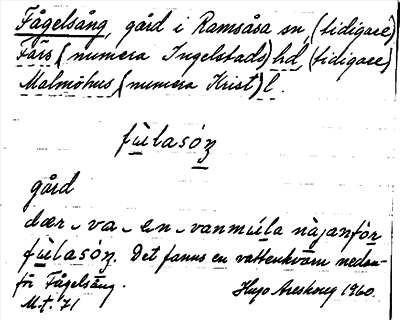 Fågelsång, gård i Ramsåsa sn, (tidigare)
Färs (numera Ingelstads) hd, (tidigare)
Malmöhus (numera Krist) l.
fùlasóŋ
gård
dær va en vanmúla nàjanför
fùlasóŋ. Det fanns en vattenkvarn nedan-
för Fågelsång.
Hugo Areskoug 1960.
M.t. '71